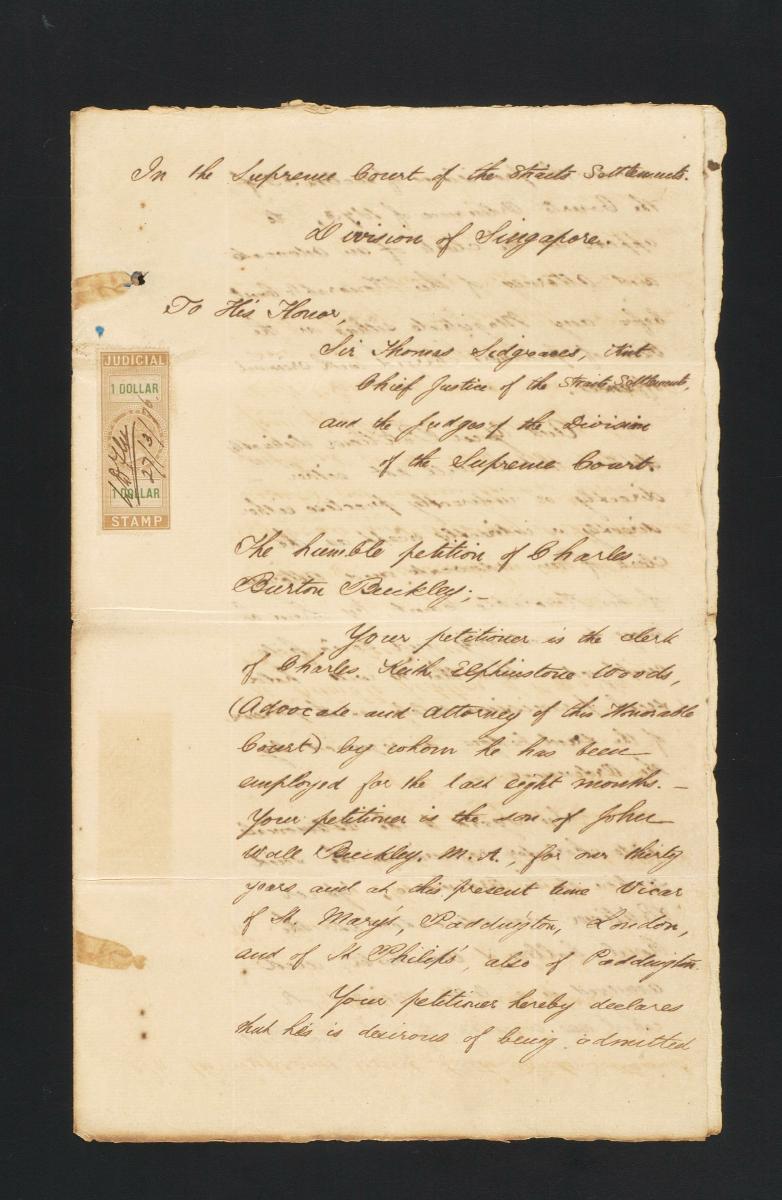 In the Supreme Court of the Straits Settlements.
Division of Singapore
To His Honor,
Sir Thomas Sidgreaves, Knt
Chief Justice of the Straits Settlements,
and the Judges of the Division
of the Supreme Court.
JUDICIAL
1 DOLLAR
27/3/76
1 DOLLAR
STAMP
The humble petition of Charles
Burton Buckley;_
Your petitioner is the clerk
of Charles Keith Elphinstone Woods,
(Advocate and Attorney of this Honorable
Court) by whom he has been
employed for the last eight months. _
Your petitioner is the son of John
Wall Buckley, M. A., for over thirty
years and at this present time Vicar
of St. Mary's, Paddington, London,
and of St Philip's, also of Paddington.
Your petitioner hereby declares
that he is desirous of being admitted